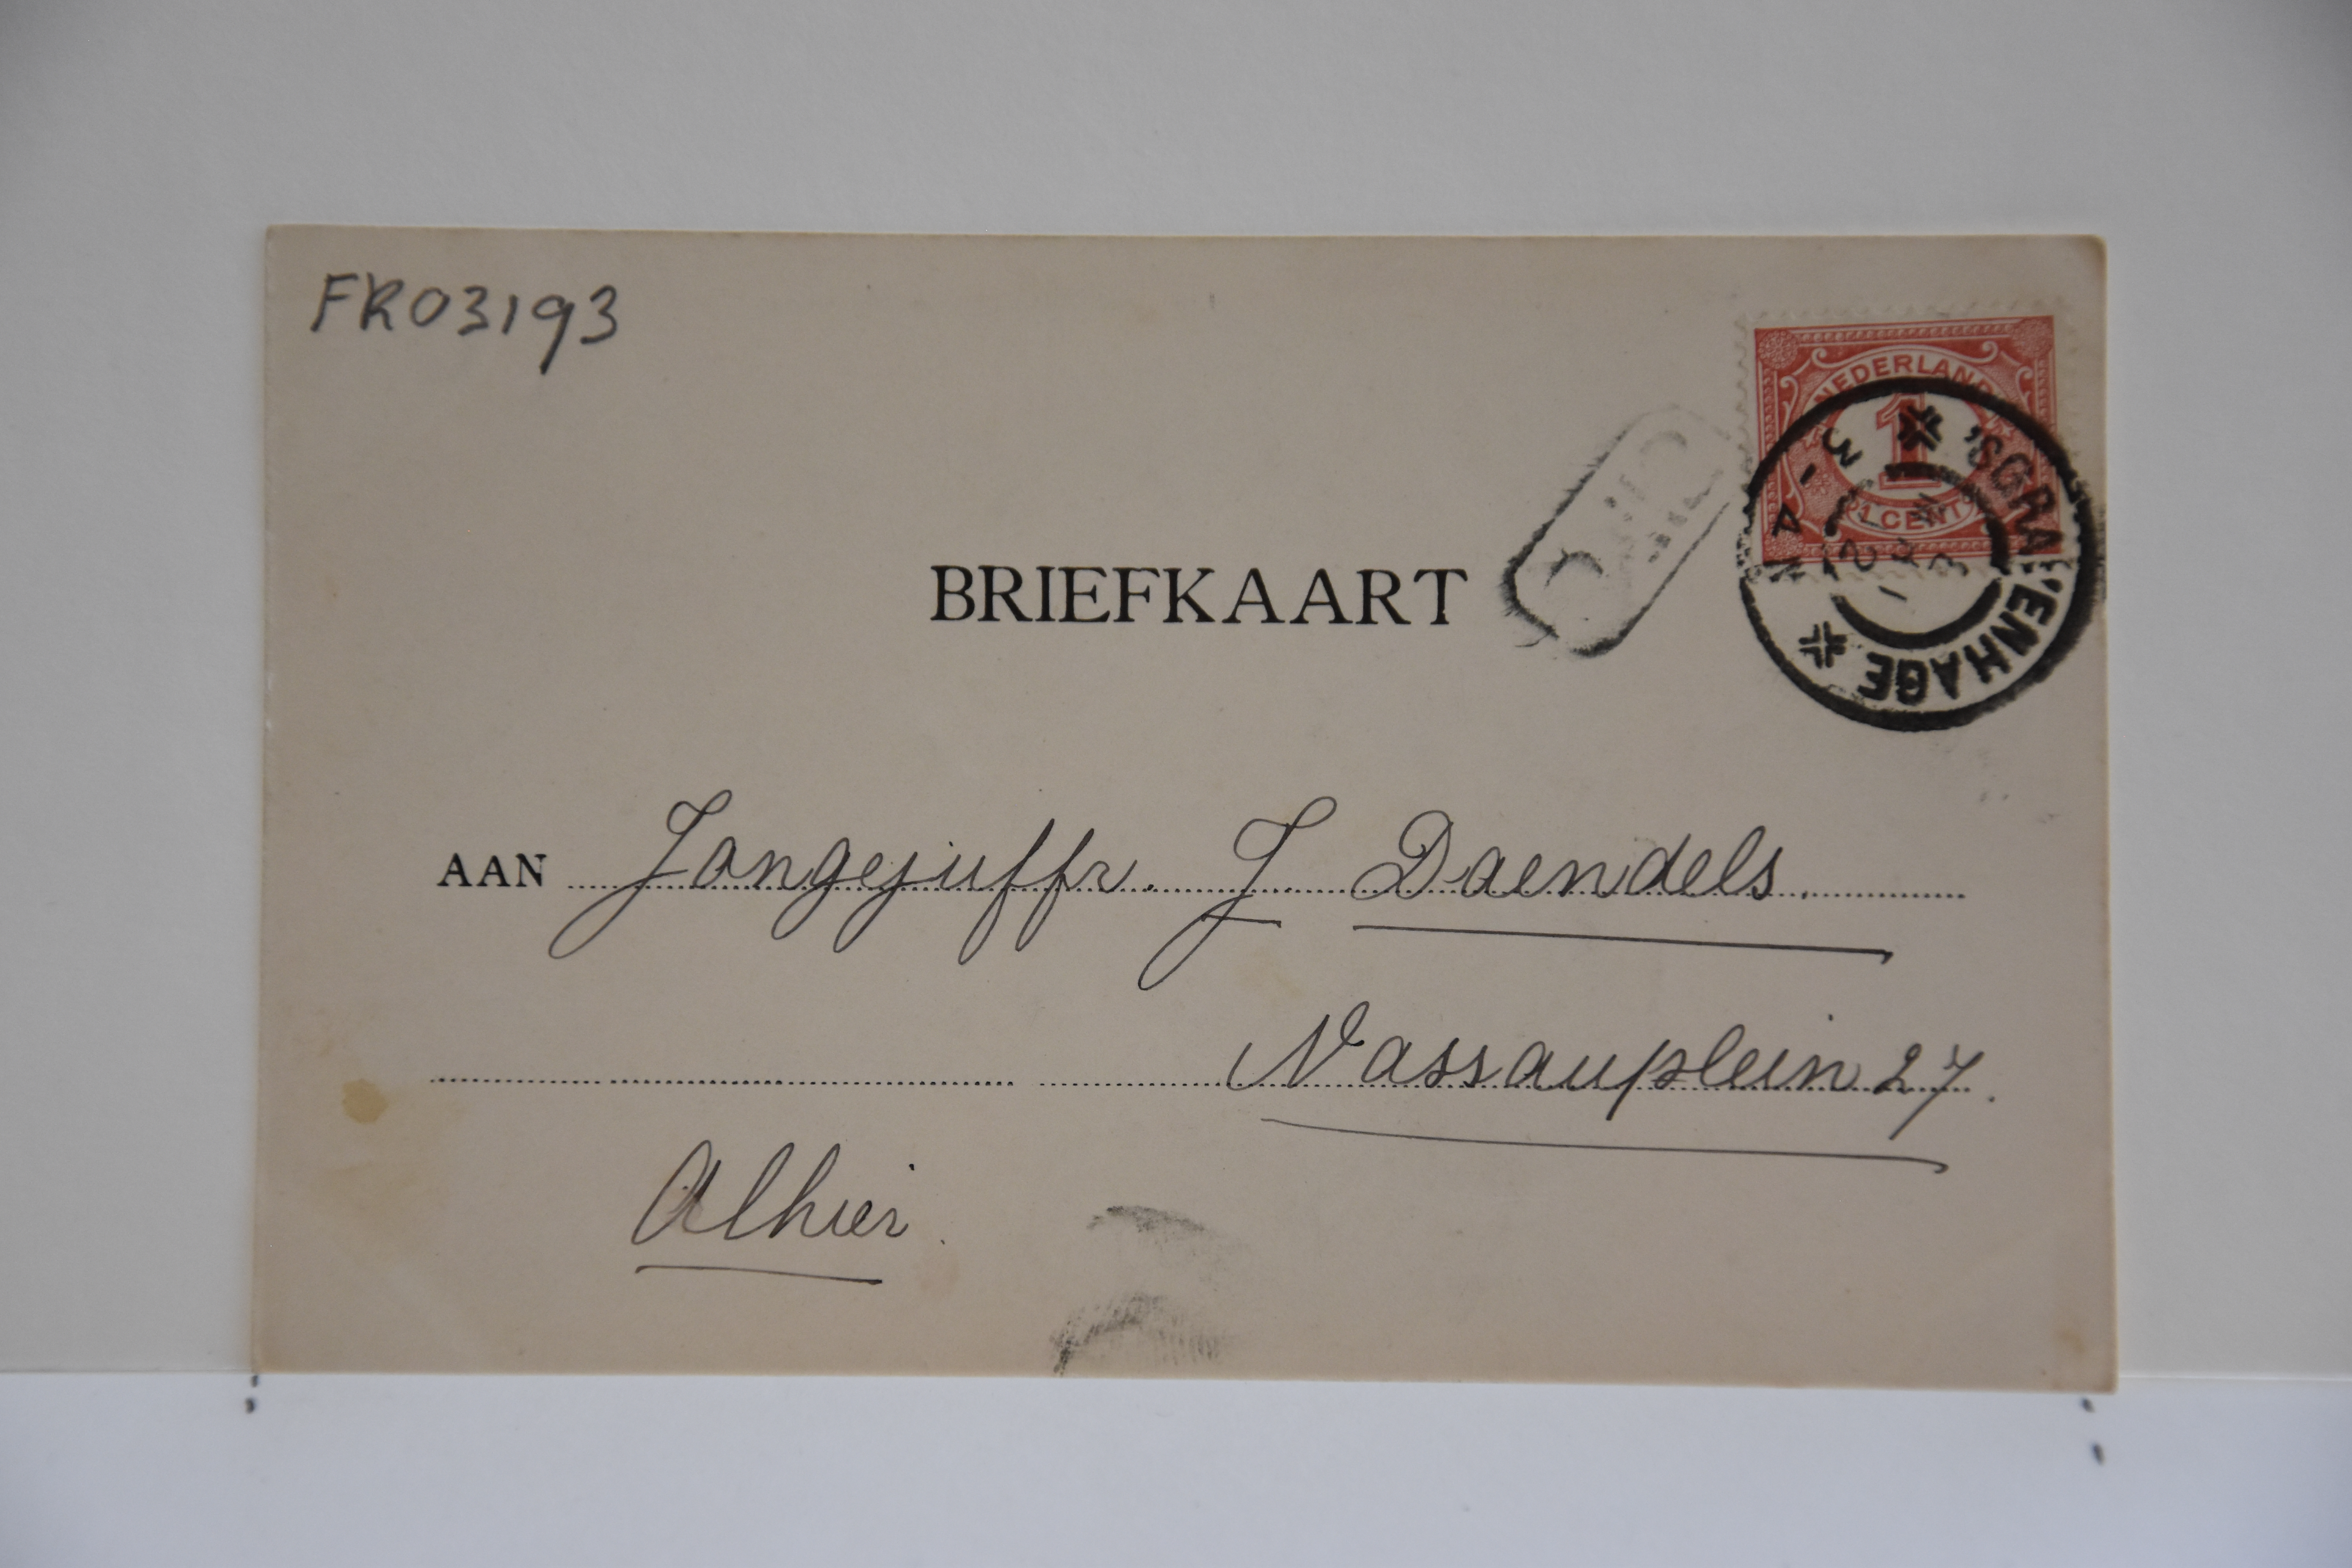 FR03193
NEDERLAND
1
1 CENT
'SGRAVENHAGE
3 - 4 N
BRIEFKAART
AAN Jongejuffr. J Daendels.
Nassauplein 27.
Alhier.